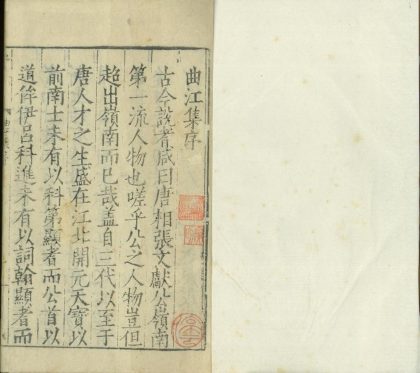 曲江集序
古今說者咸曰唐相張文獻公嶺南
第一流人物也嗟乎公之人物豈但
超出嶺南而已哉盖自三代以至于
唐人才之生盛在江北開元天寶以
前南士未有以科第顯者而公首以
道侔伊呂科進未有以詞翰顯者而